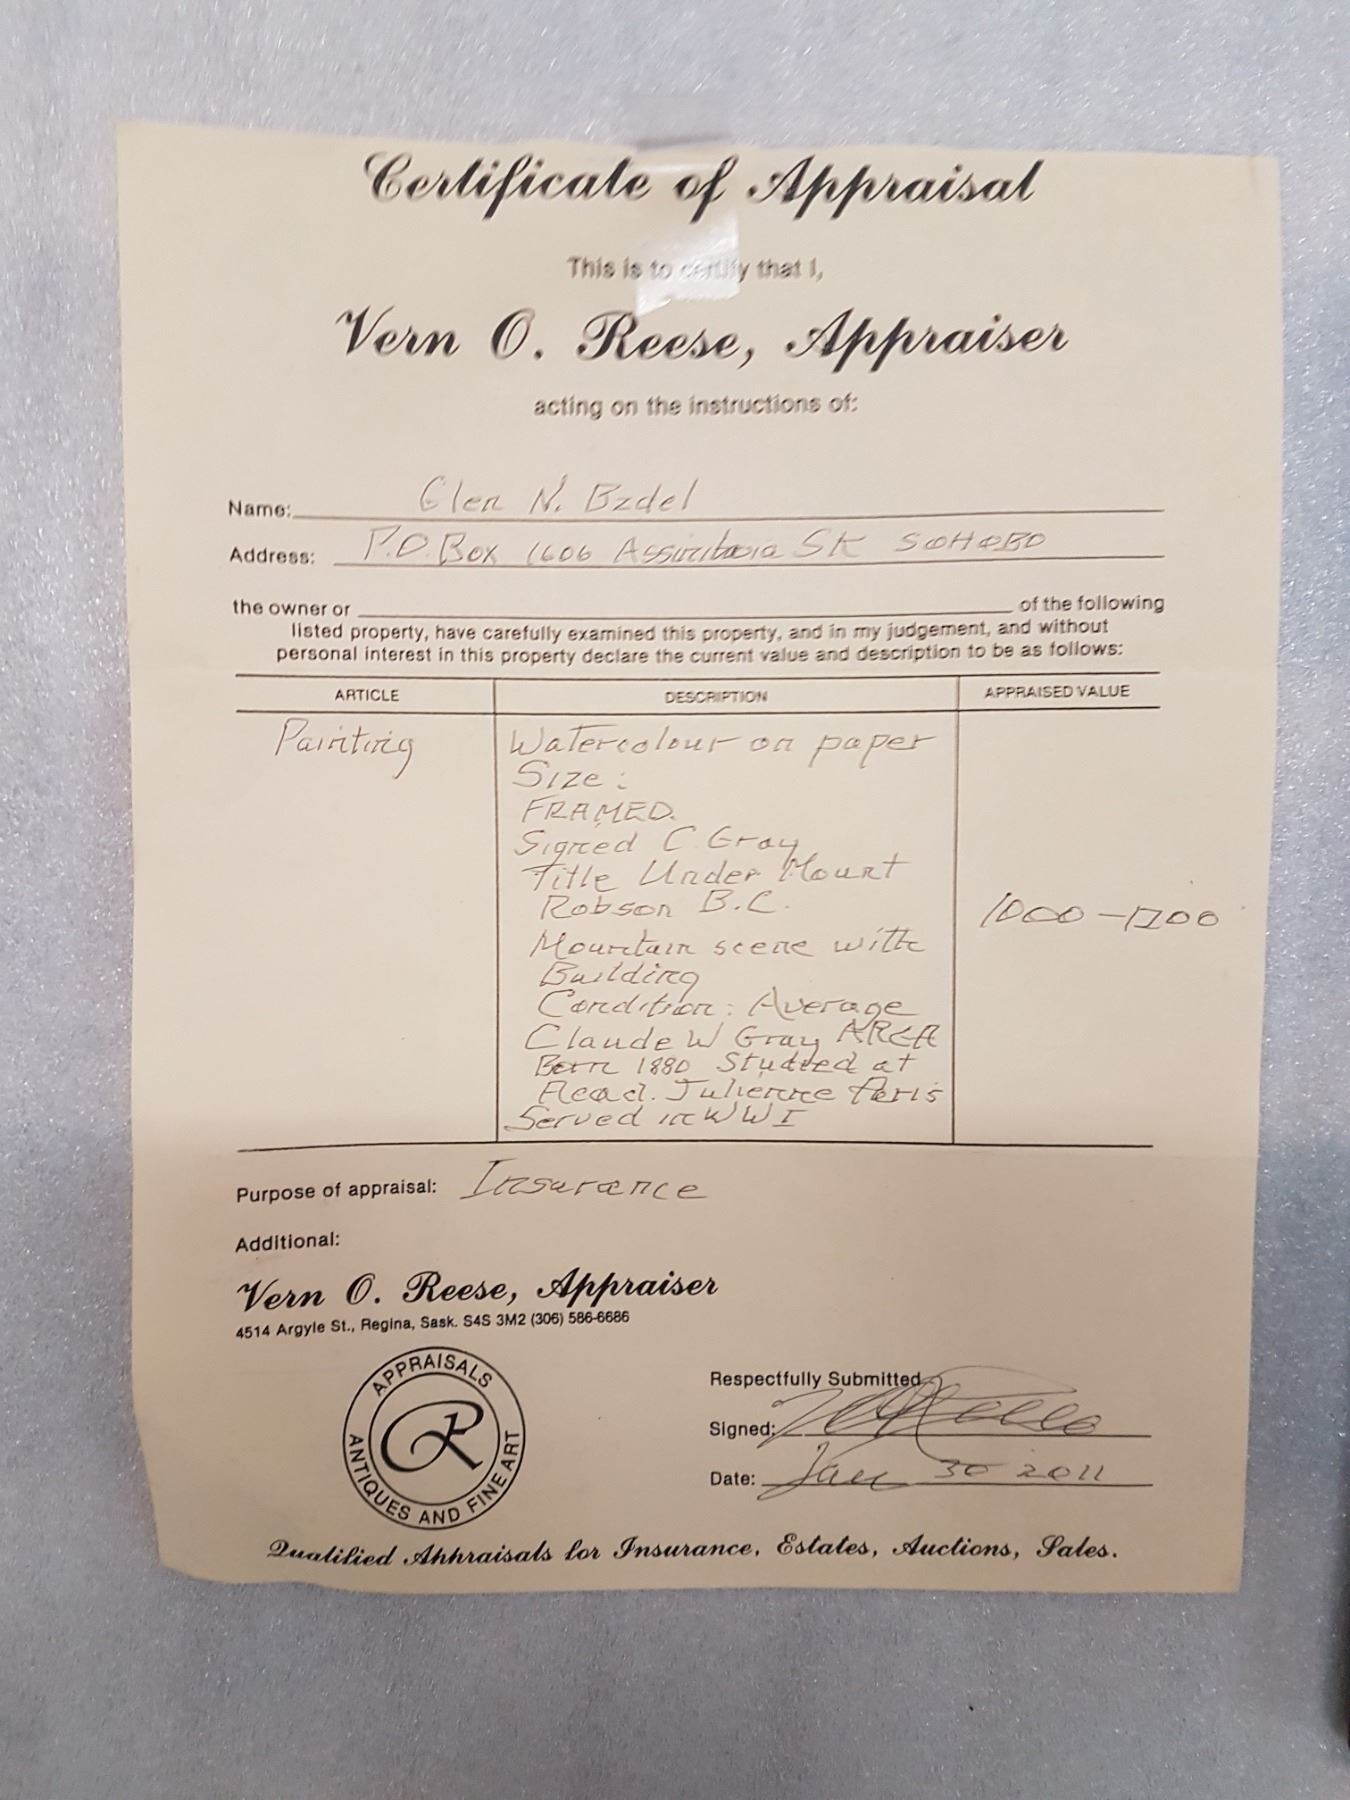 Certificate of Appraisal
This is to certify that I,
Vern O. Reese, Appraiser
acting on the instructions of:
Name: Glen N. Bzdel
Address: P.O. Box 1606 Assiniboia SK S0H0B0
the owner or of the following
listed property, have carefully examined this property, and in my judgement, and without
personal interest in this property declare the current value and description to be as follows:
ARTICLE DESCRIPTION APPRAISED VALUE
Painting Watercolour on paper
Size:
FRAMED.
Signed C. Gray
Title Under Mount
Robson B.C.
1000 - 1200
Mountain scene with
Building
Condition: Average
Claude W Gray ARCA
Born 1880 Studied at
Acad. Julienne Paris
Served in WWI
Purpose of appraisal: Insurance
Additional:
Vern O. Reese, Appraiser
4514 Argyle St., Regina, Sask. S4S 3M2 (306) 586-6686
APPRAISALS
R
ANTIQUES AND FINE ART
Respectfully Submitted
Signed:
Date: Jan 30 2011
Qualified Appraisals for Insurance, Estates, Auctions, Sales.